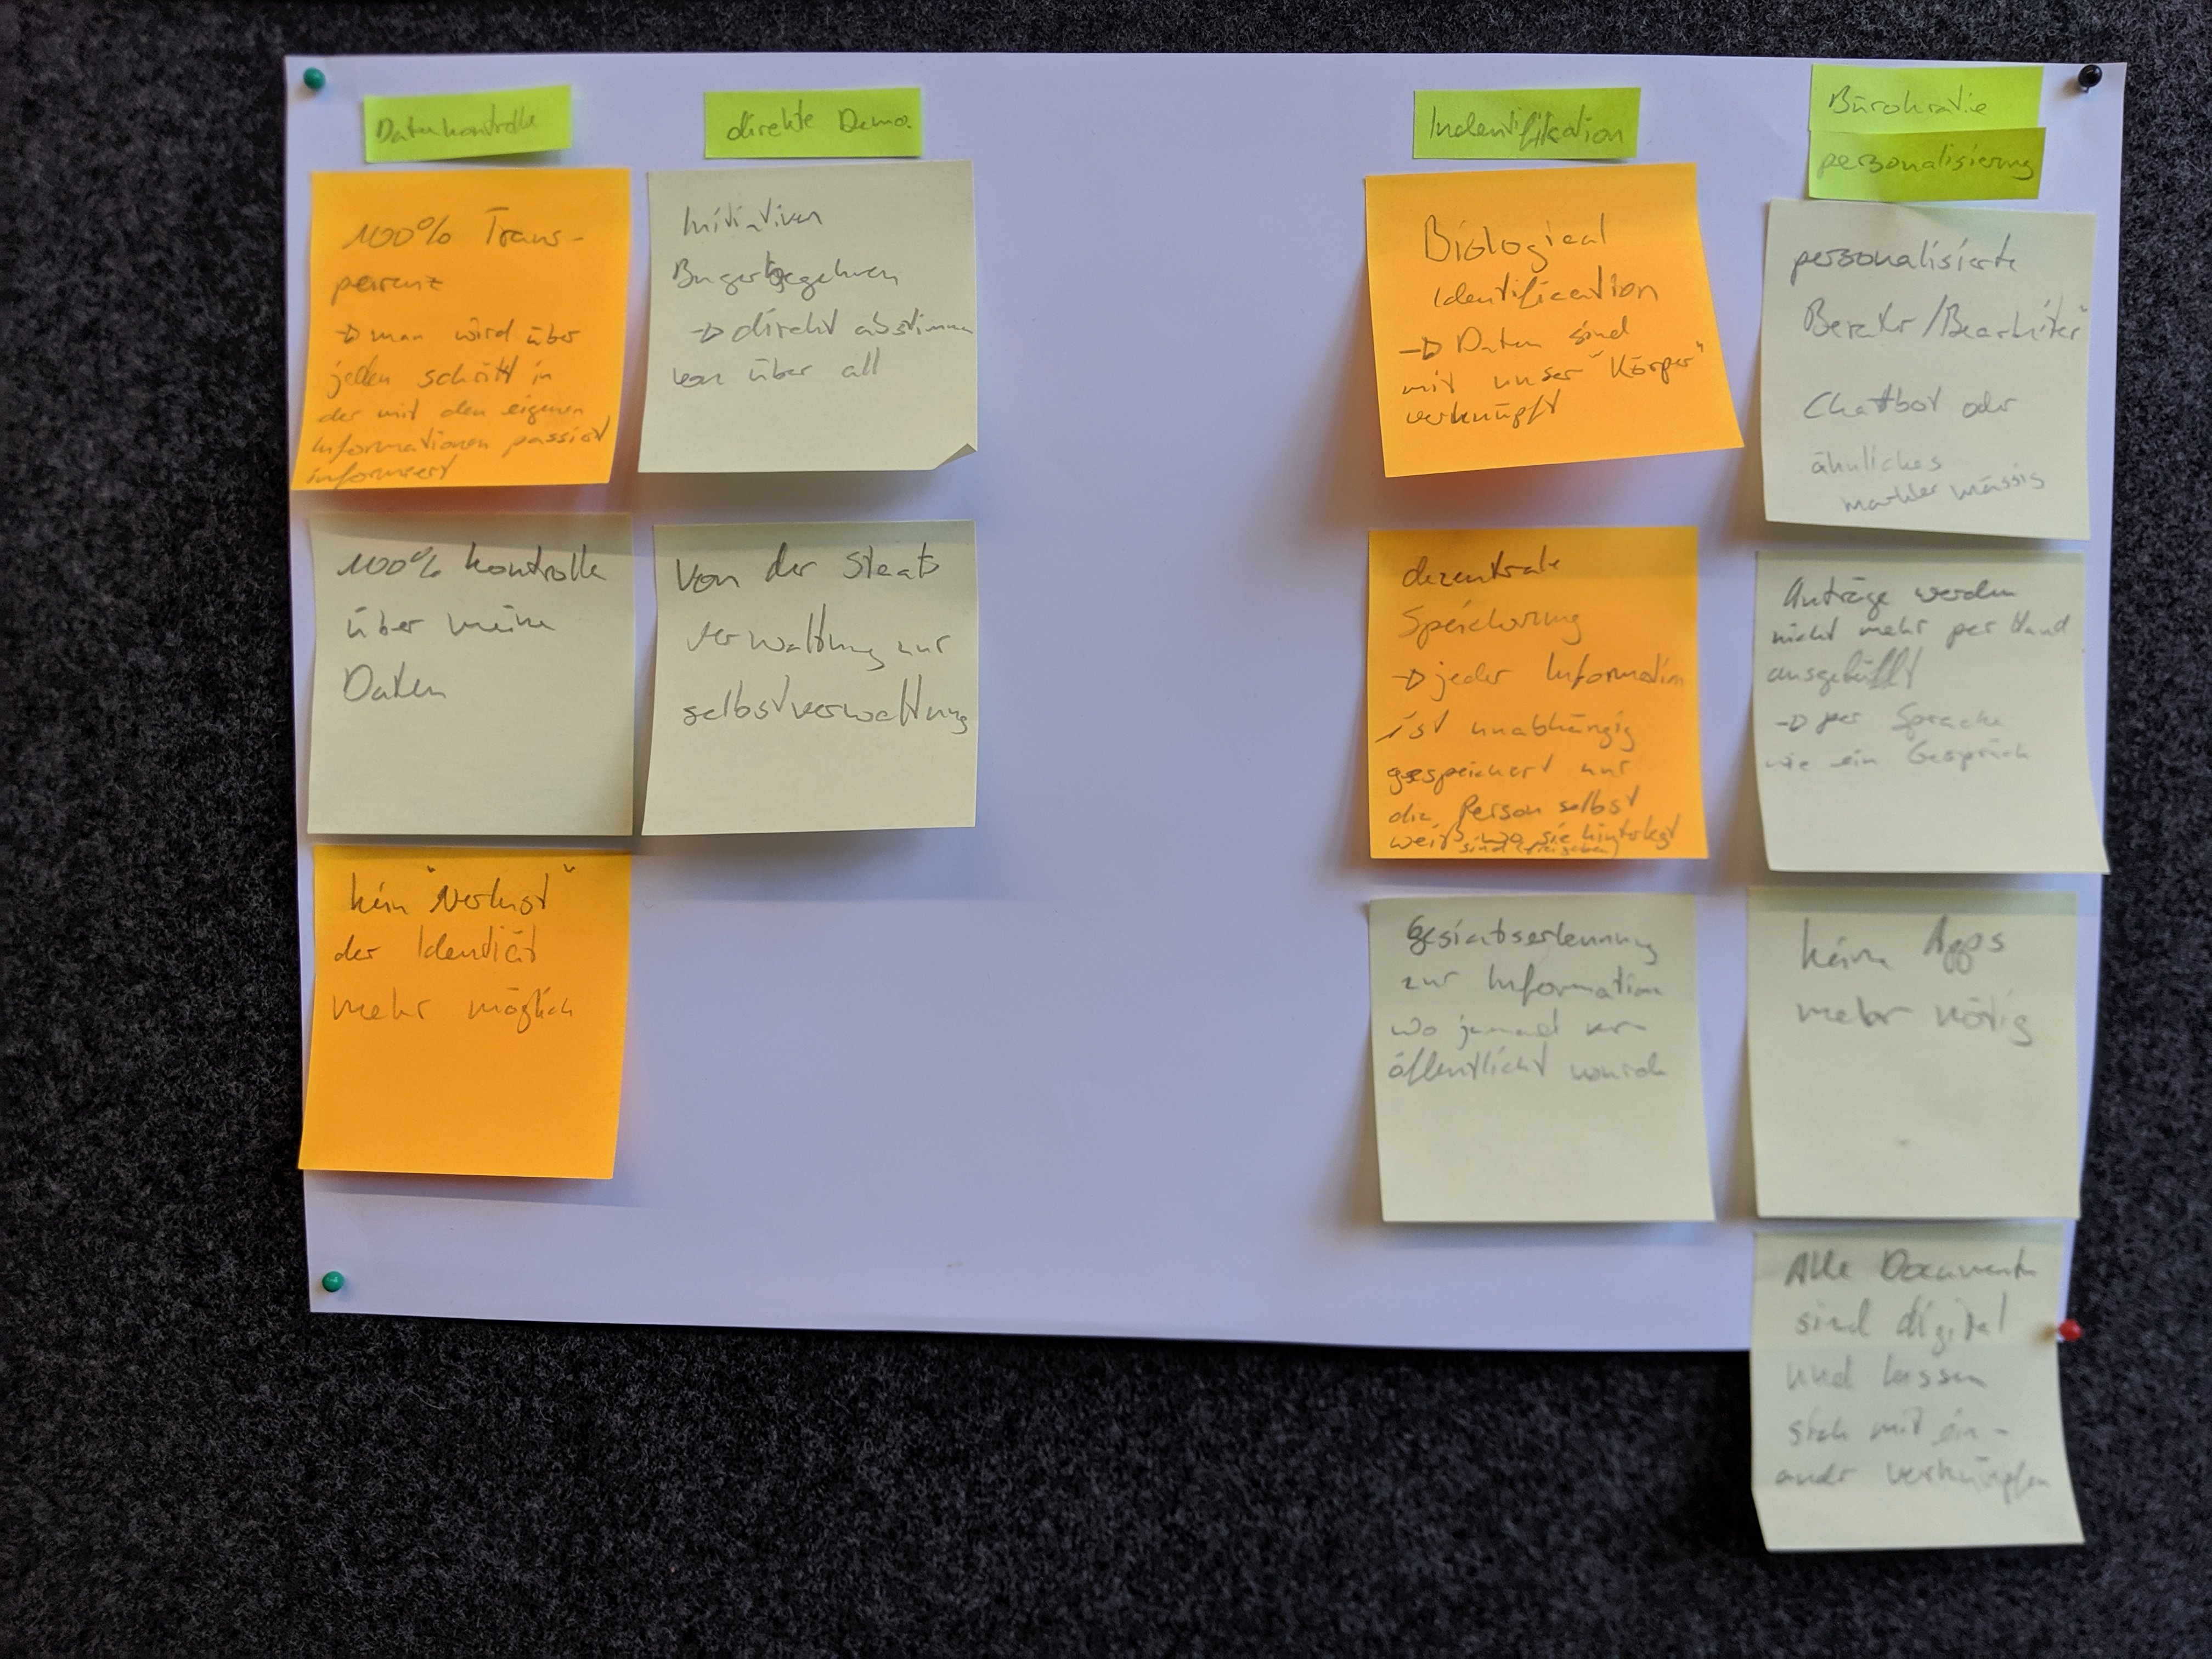 Datenkontrolle
100% Trans-
parenz
→ man wird über
jeden schritt in
der mit den eigenen
Informationen passiert
informiert
100% kontrolle
über meine
Daten
kein "Verlust"
der Identität
mehr möglich
direkte Demo.
Initiativen
Burgerbegehren
→ direkt abstimmen
von über all
Von der Staats
verwaltung zur
selbstverwaltung
Indentifikation
Biological
Identification
→ Daten sind
mit unser "Körper"
verknüpft
dezentrale
Speicherung
→ jeder Information
ist unabhängig
gespeichert nur
die Person selbst
weiß wo sie hinterlegt
sind (freigeben)
Gesichtserkennung
zur Information
wo jemand ver-
öffentlicht wurde
Bürokratie
personalisierung
personalisierte
Berater/Bearbeiter
Chatbot oder
ähnliches
mässig
Anträge werden
nicht mehr per Hand
ausgefüllt
→ per Sprache
wie ein Gespräch
keine Apps
mehr nötig
Alle Documente
sind digital
und lassen
sich mit ein-
ander verknüpfen